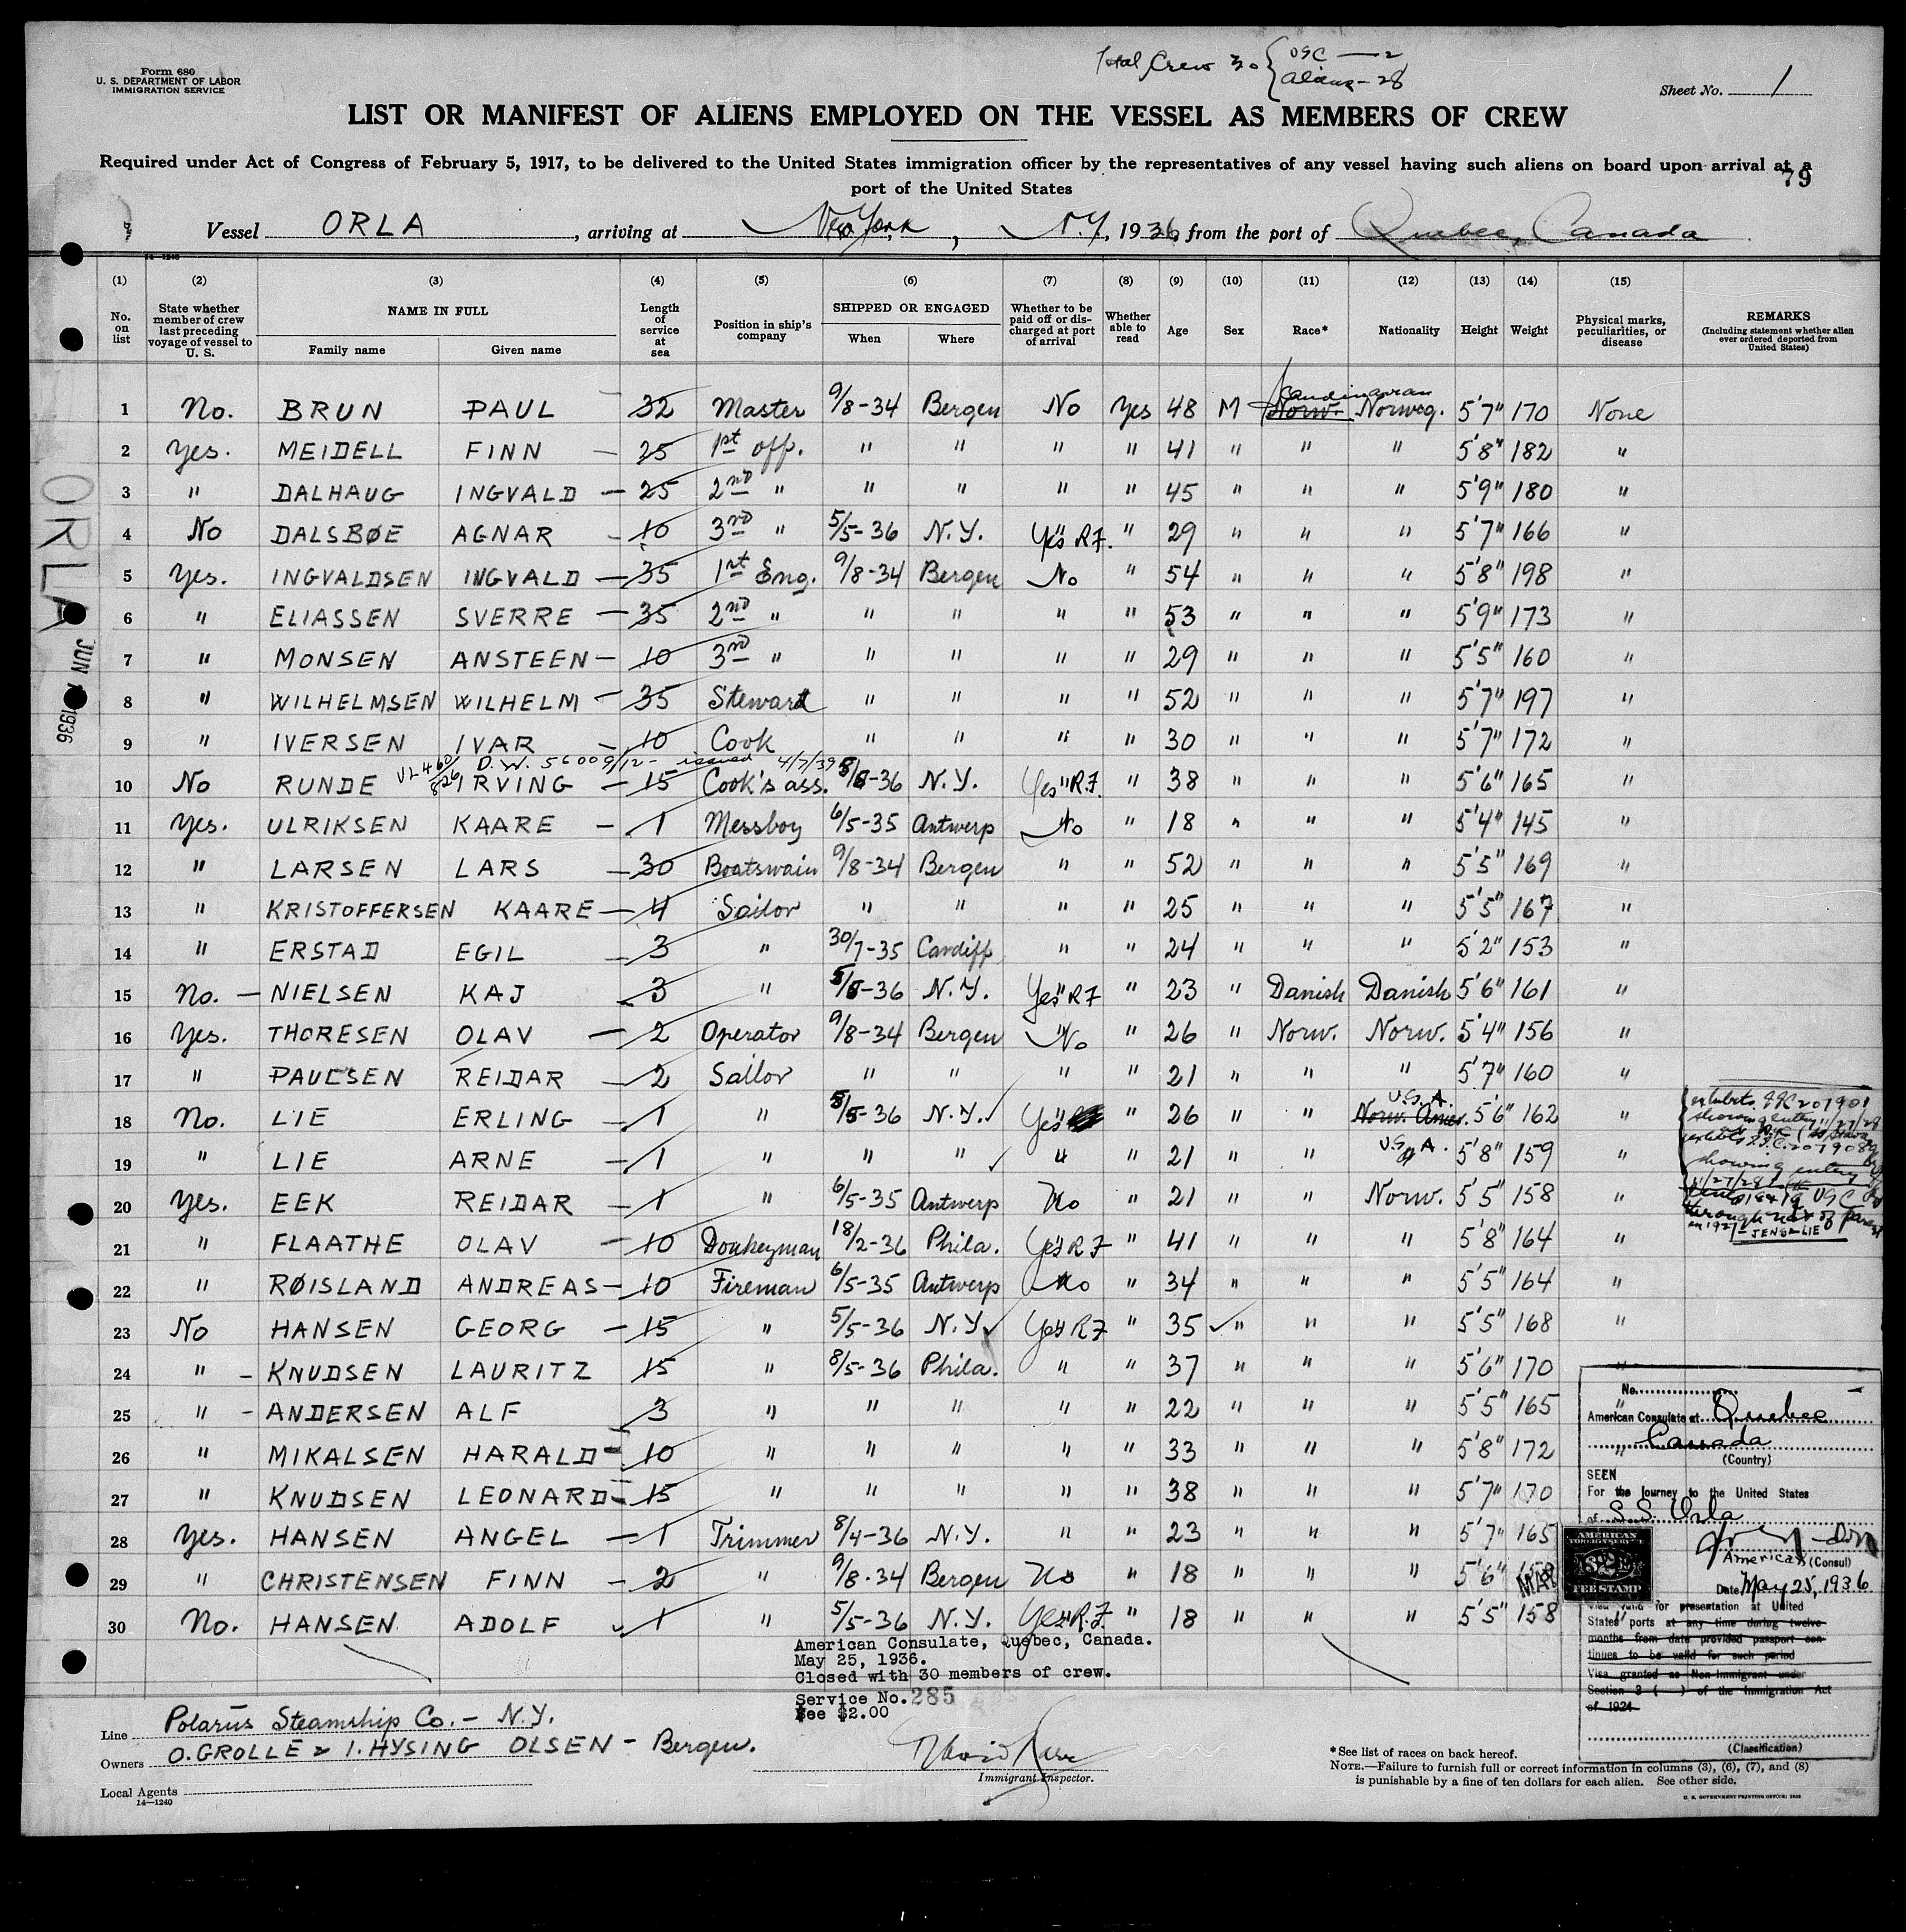 Form 680
U. S. DEPARTMENT OF LABOR
IMMIGRATION SERVICE
Total Crew 30 { USC — 2
Aliens - 28
Sheet No. 1
LIST OR MANIFEST OF ALIENS EMPLOYED ON THE VESSEL AS MEMBERS OF CREW
Required under Act of Congress of February 5, 1917, to be delivered to the United States immigration officer by the representatives of any vessel having such aliens on board upon arrival at a
port of the United States
79
Vessel ORLA, arriving at New York, N.Y, 1936, from the port of Quebec, Canada
14-1240
(1) (2) (3) (4) (5) (6) (7) (8) (9) (10) (11) (12) (13) (14) (15)
No. on list
State whether member of crew last preceding voyage of vessel to U. S.
NAME IN FULL
Family name Given name
Length of service at sea
Position in ship's company
SHIPPED OR ENGAGED
When Where
Whether to be paid off or discharged at port of arrival
Whether able to read
Age Sex Race* Nationality Height Weight
Physical marks, peculiarities, or disease
REMARKS
(Including statement whether alien ever ordered deported from United States)
Scandinavian
1 No. BRUN PAUL 32 Master 9/8-34 Bergen No Yes 48 M Norw. Norweg. 5'7" 170 None
2 Yes. MEIDELL FINN — 25 1st off. " " " " 41 " " " 5'8" 182 "
3 " DALHAUG INGVALD — 25 2nd " " " " " 45 " " " 5'9" 180 "
4 No DALSBØE AGNAR — 10 3rd " 5/5-36 N.Y. Yes R.F. " 29 " " " 5'7" 166 "
5 Yes. INGVALDSEN INGVALD — 35 1st Eng. 9/8-34 Bergen No " 54 " " " 5'8" 198 "
6 " ELIASSEN SVERRE — 35 2nd " " " " " 53 " " " 5'9" 173 "
7 " MONSEN ANSTEEN — 10 3rd " " " " " 29 " " " 5'5" 160 "
8 " WILHELMSEN WILHELM — 35 Steward " " " " 52 " " " 5'7" 197 "
9 " IVERSEN IVAR — 10 Cook " " " " 30 " " " 5'7" 172 "
issued 4/7/39
10 No RUNDE IRVING — 15 Cook's ass. 5/5-36 N.Y. Yes R.F. " 38 " " " 5'6" 165 "
11 Yes. ULRIKSEN KAARE — 1 Messboy 6/5-35 Antwerp No " 18 " " " 5'4" 145 "
12 " LARSEN LARS — 30 Boatswain 9/8-34 Bergen " " 52 " " " 5'5" 169 "
13 " KRISTOFFERSEN KAARE — 4 Sailor " " " " 25 " " " 5'5" 167 "
14 " ERSTAD EGIL — 3 " 30/7-35 Cardiff " " 24 " " " 5'2" 153 "
15 No. — NIELSEN KAJ 3 " 5/5-36 N.Y. Yes R F " 23 " Danish Danish 5'6" 161 "
16 Yes. THORESEN OLAV — 2 Operator 9/8-34 Bergen No " 26 " Norw. Norw. 5'4" 156 "
17 " PAULSEN REIDAR — 2 Sailor " " " " 21 " " " 5'7" 160 "
U.S.A.
18 No. LIE ERLING — 1 " 5/5-36 N.Y. Yes " 26 " " Norw. Amer. 5'6" 162 "
19 " LIE ARNE — 1 " " " " " 21 " " U.S.A. 5'8" 159 "
20 Yes. EEK REIDAR — 1 " 6/5-35 Antwerp No " 21 " " Norw. 5'5" 158 "
21 " FLAATHE OLAV — 10 Donkeyman 18/2-36 Phila. Yes R F " 41 " " " 5'8" 164 "
22 " RØISLAND ANDREAS — 10 Fireman 6/5-35 Antwerp No " 34 " " " 5'5" 164 "
23 No HANSEN GEORG — 15 " 5/5-36 N.Y. Yes R F " 35 " " " 5'5" 168 "
24 " — KNUDSEN LAURITZ 15 " 8/5-36 Phila. " " 37 " " " 5'6" 170 "
25 " — ANDERSEN ALF 3 " " " " " 22 " " " 5'5" 165 "
26 " MIKALSEN HARALD — 10 " " " " " 33 " " " 5'8" 172 "
27 " KNUDSEN LEONARD — 15 " " " " " 38 " " " 5'7" 170
28 Yes. HANSEN ANGEL — 1 Trimmer 8/4-36 N.Y. " " 23 " " " 5'7" 165
29 " CHRISTENSEN FINN — 2 " 9/8-34 Bergen No " 18 " " " 5'6" 158
30 No. HANSEN ADOLF 1 " 5/5-36 N.Y. Yes R.F. " 18 " " " 5'5" 158
ORLA
JUN 1 1936
through nat of parent
in 1927 - JENS LIE
No.
American Consulate at Quebec
Canada
(Country)
SEEN
For the journey to the United States
of S.S. Orla
American (Consul)
Date May 25, 1936
Visa valid for presentation at United
States ports at any time during twelve
months from date provided passport con-
tinues to be valid for such period
Visa granted as Non-Immigrant under
Section 3 ( ) of the Immigration Act
of 1924
(Classification)
AMERICAN
FOREIGN SERVICE
$2
FEE STAMP
MAR
American Consulate, Quebec, Canada.
May 25, 1936.
Closed with 30 members of crew.
Service No. 285
Fee $2.00
Line Polarus Steamship Co. - N.Y.
Owners O. GROLLE & I. HYSING OLSEN - Bergen.
Local Agents
14-1240
Immigrant Inspector.
*See list of races on back hereof.
NOTE.—Failure to furnish full or correct information in columns (3), (6), (7), and (8)
is punishable by a fine of ten dollars for each alien. See other side.